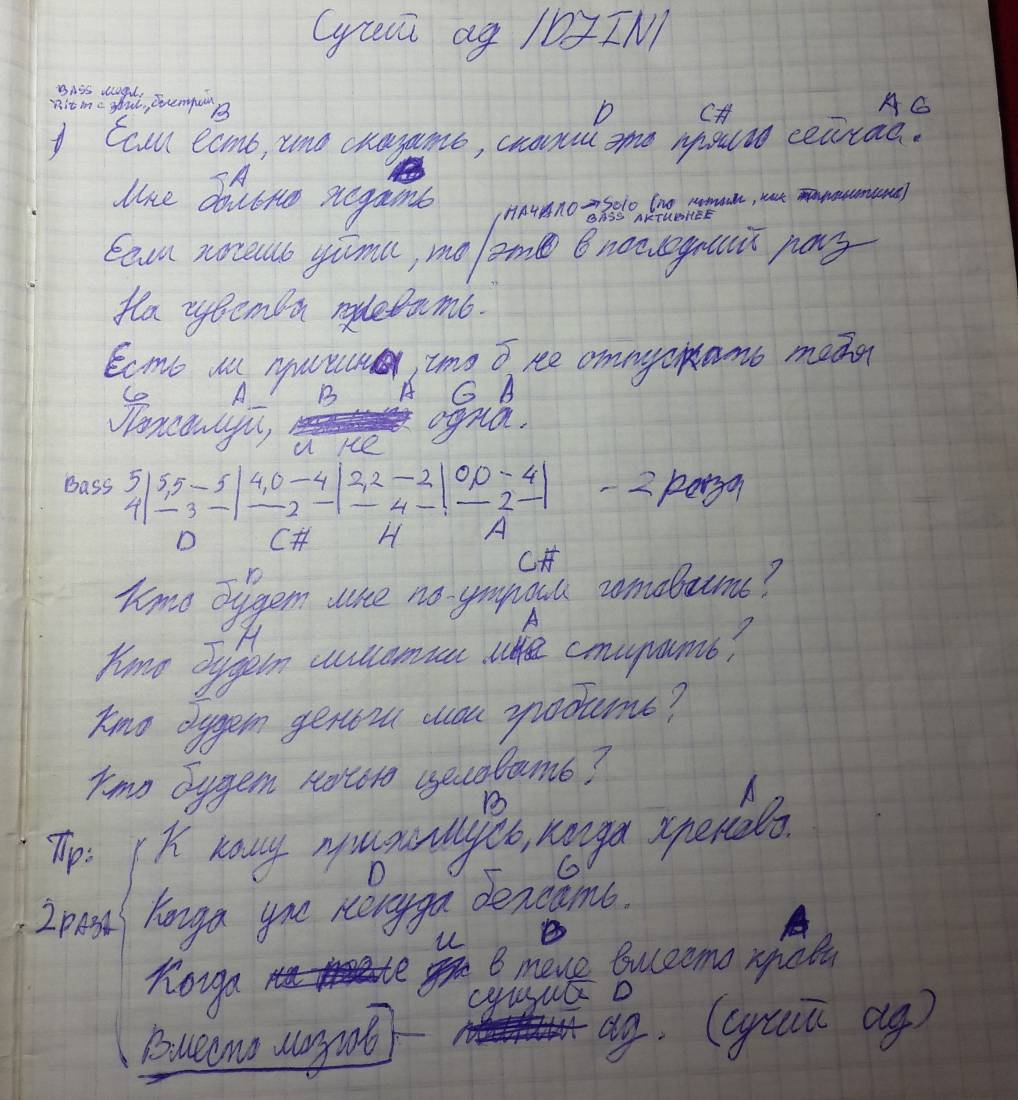 Сучий ад /DJIN/
BASS медл.
Ritm с загл., быстрый
B D C# A G
1) Если есть, что сказать, скажи это прямо сейчас.
A B
Мне больно ждать
НАЧАЛО → Solo (по нотам, как Тарантино)
BASS АКТИВНЕЕ
Если хочешь уйти, то / это в последний раз
На чувства плевать.
Есть ли причина, что б не отпускать тебя
G A B A G A
Пожалуй, и не одна.
Bass 5 | 5,5 – 5 | 4,0 – 4 | 2,2 – 2 | 0,0 – 4 | – 2 раза
4 | – 3 – | – 2 | – 4 – | – 2 – |
D C# H A
D C#
Кто будет мне по-утрам готовить?
H A
Кто будет шмотки мне стирать?
Кто будет деньги мои гробить?
Кто будет ночью целовать?
B A
Пр: К кому прижмусь, когда хреново.
D G
2 РАЗА Когда уж некуда бежать.
B A
Когда и в теле вместо крови
D
Вместо мозгов – сущий ад. (сучий ад)